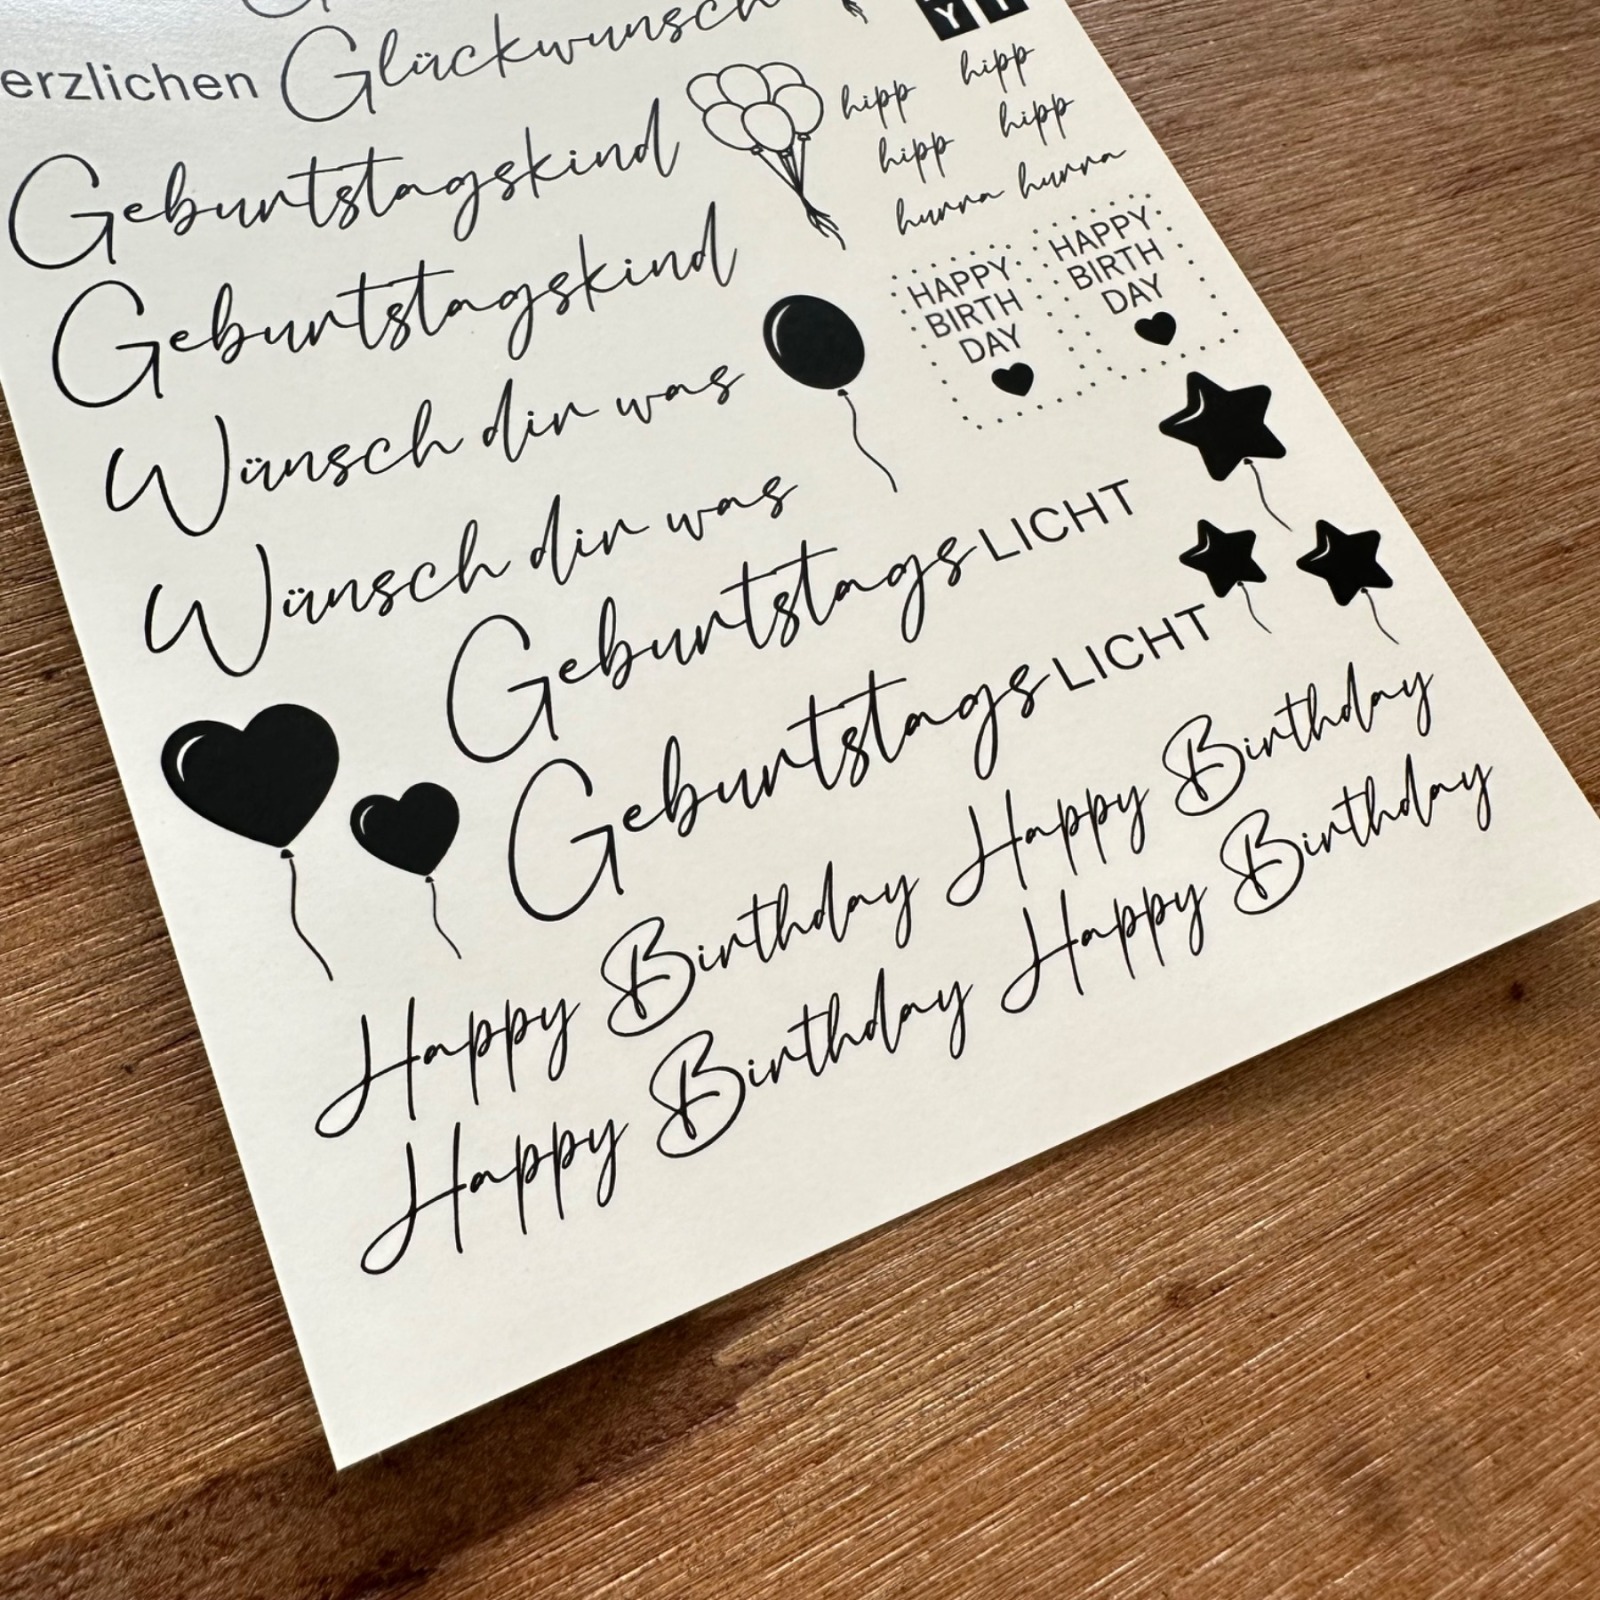 erzlichen Glückwunsch
Geburtstagskind
Geburtstagskind
Wünsch dir was
Wünsch dir was
Geburtstags LICHT
Geburtstags LICHT
Happy Birthday Happy Birthday
Happy Birthday Happy Birthday
Y
hipp hipp
hipp hipp
hurra hurra
HAPPY
BIRTH
DAY
HAPPY
BIRTH
DAY